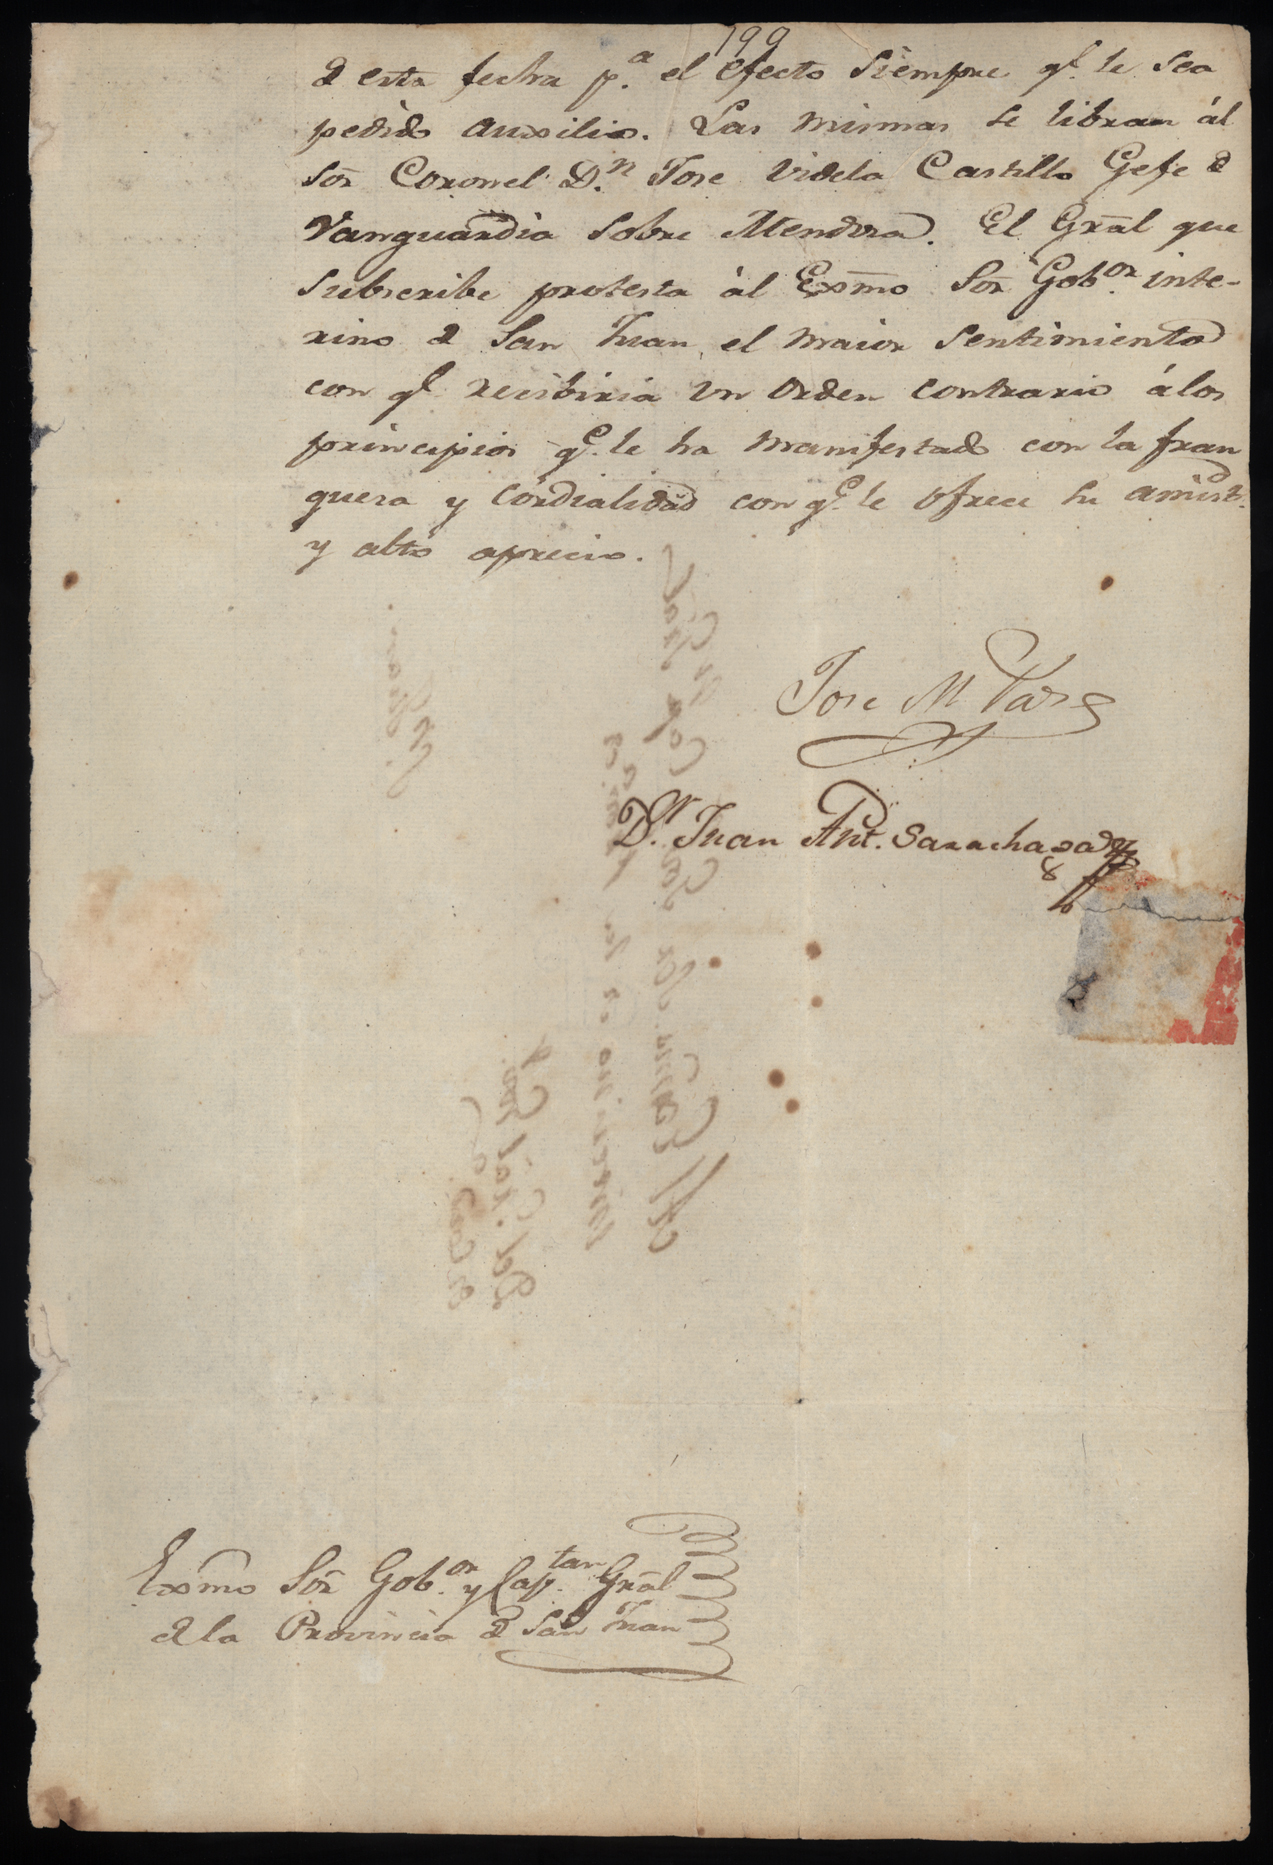 199
d esta fecha p.a el efecto siempre q.e le sea
pedido auxilio. Las mismas se libran ál
Sor̃ Coronel D.n Jose Videla Castillo Gefe d
Vanguardia sobre Mendoza. El Grãl que
subscribe protesta ál Exm̃o Sor̃ Gob.or inte-
rino d San Juan, el maior sentimiento
con q.e recibiria un orden contrario á los
principios q.e le ha manifestado con la fran
quesa y cordialidad con q.e le ofrece su amist.d
y alto aprecio.
Jose M Paz
D.n Juan Ant. Sarachaga
Exm̃o Sor̃ Gob.or y Cap.tan Grãl
d la Provincia d San Juan